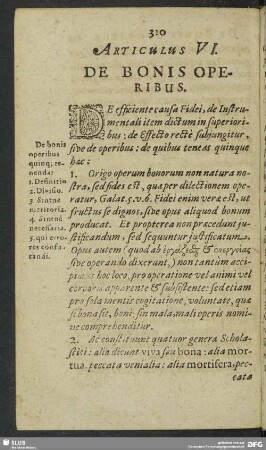 320
ARTICULUS VI.
DE BONIS OPE-
RIBUS.
DE efficiente causa Fidei, de Instru-
mentali item dictum in superiori-
bus: de Effecto rectè subjungitur,
sive de operibus: de quibus teneas quinque
hæc:
De bonis
operibus
quinq; te-
nenda:
1. Definitio.
2. Divisio.
3. Sintne
meritoria.
4. Sintne
necessaria.
5. qui erro-
res confu-
tandi.
1. Origo operum bonorum non natura no-
stra, sed fides est, quæ per dilectionem ope-
ratur, Galat. 5. v. 6. Fidei enim veræ est, ut
fructus se dignos, sive opus aliquod bonum
producat. Et propterea non præcedunt ju-
stificandum, sed sequuntur justificatum.
Opus autem (quod ab
sive operando dixerunt,) non tantùm acci-
piatur hoc loco, pro operatione vel animi vel
corporis apparente & subsistente: sed etiam
pro sola mentis cogitatione, voluntate, quæ
si bona sit, boni: sin mala, mali operis nomi-
ne comprehenditur.
2. Ac constituunt quatuor genera Schola-
stici: alia dicunt viva seu bona: alia mor-
tua: peccata venialia: alia mortifera, pec-
cata
SLUB
DFG